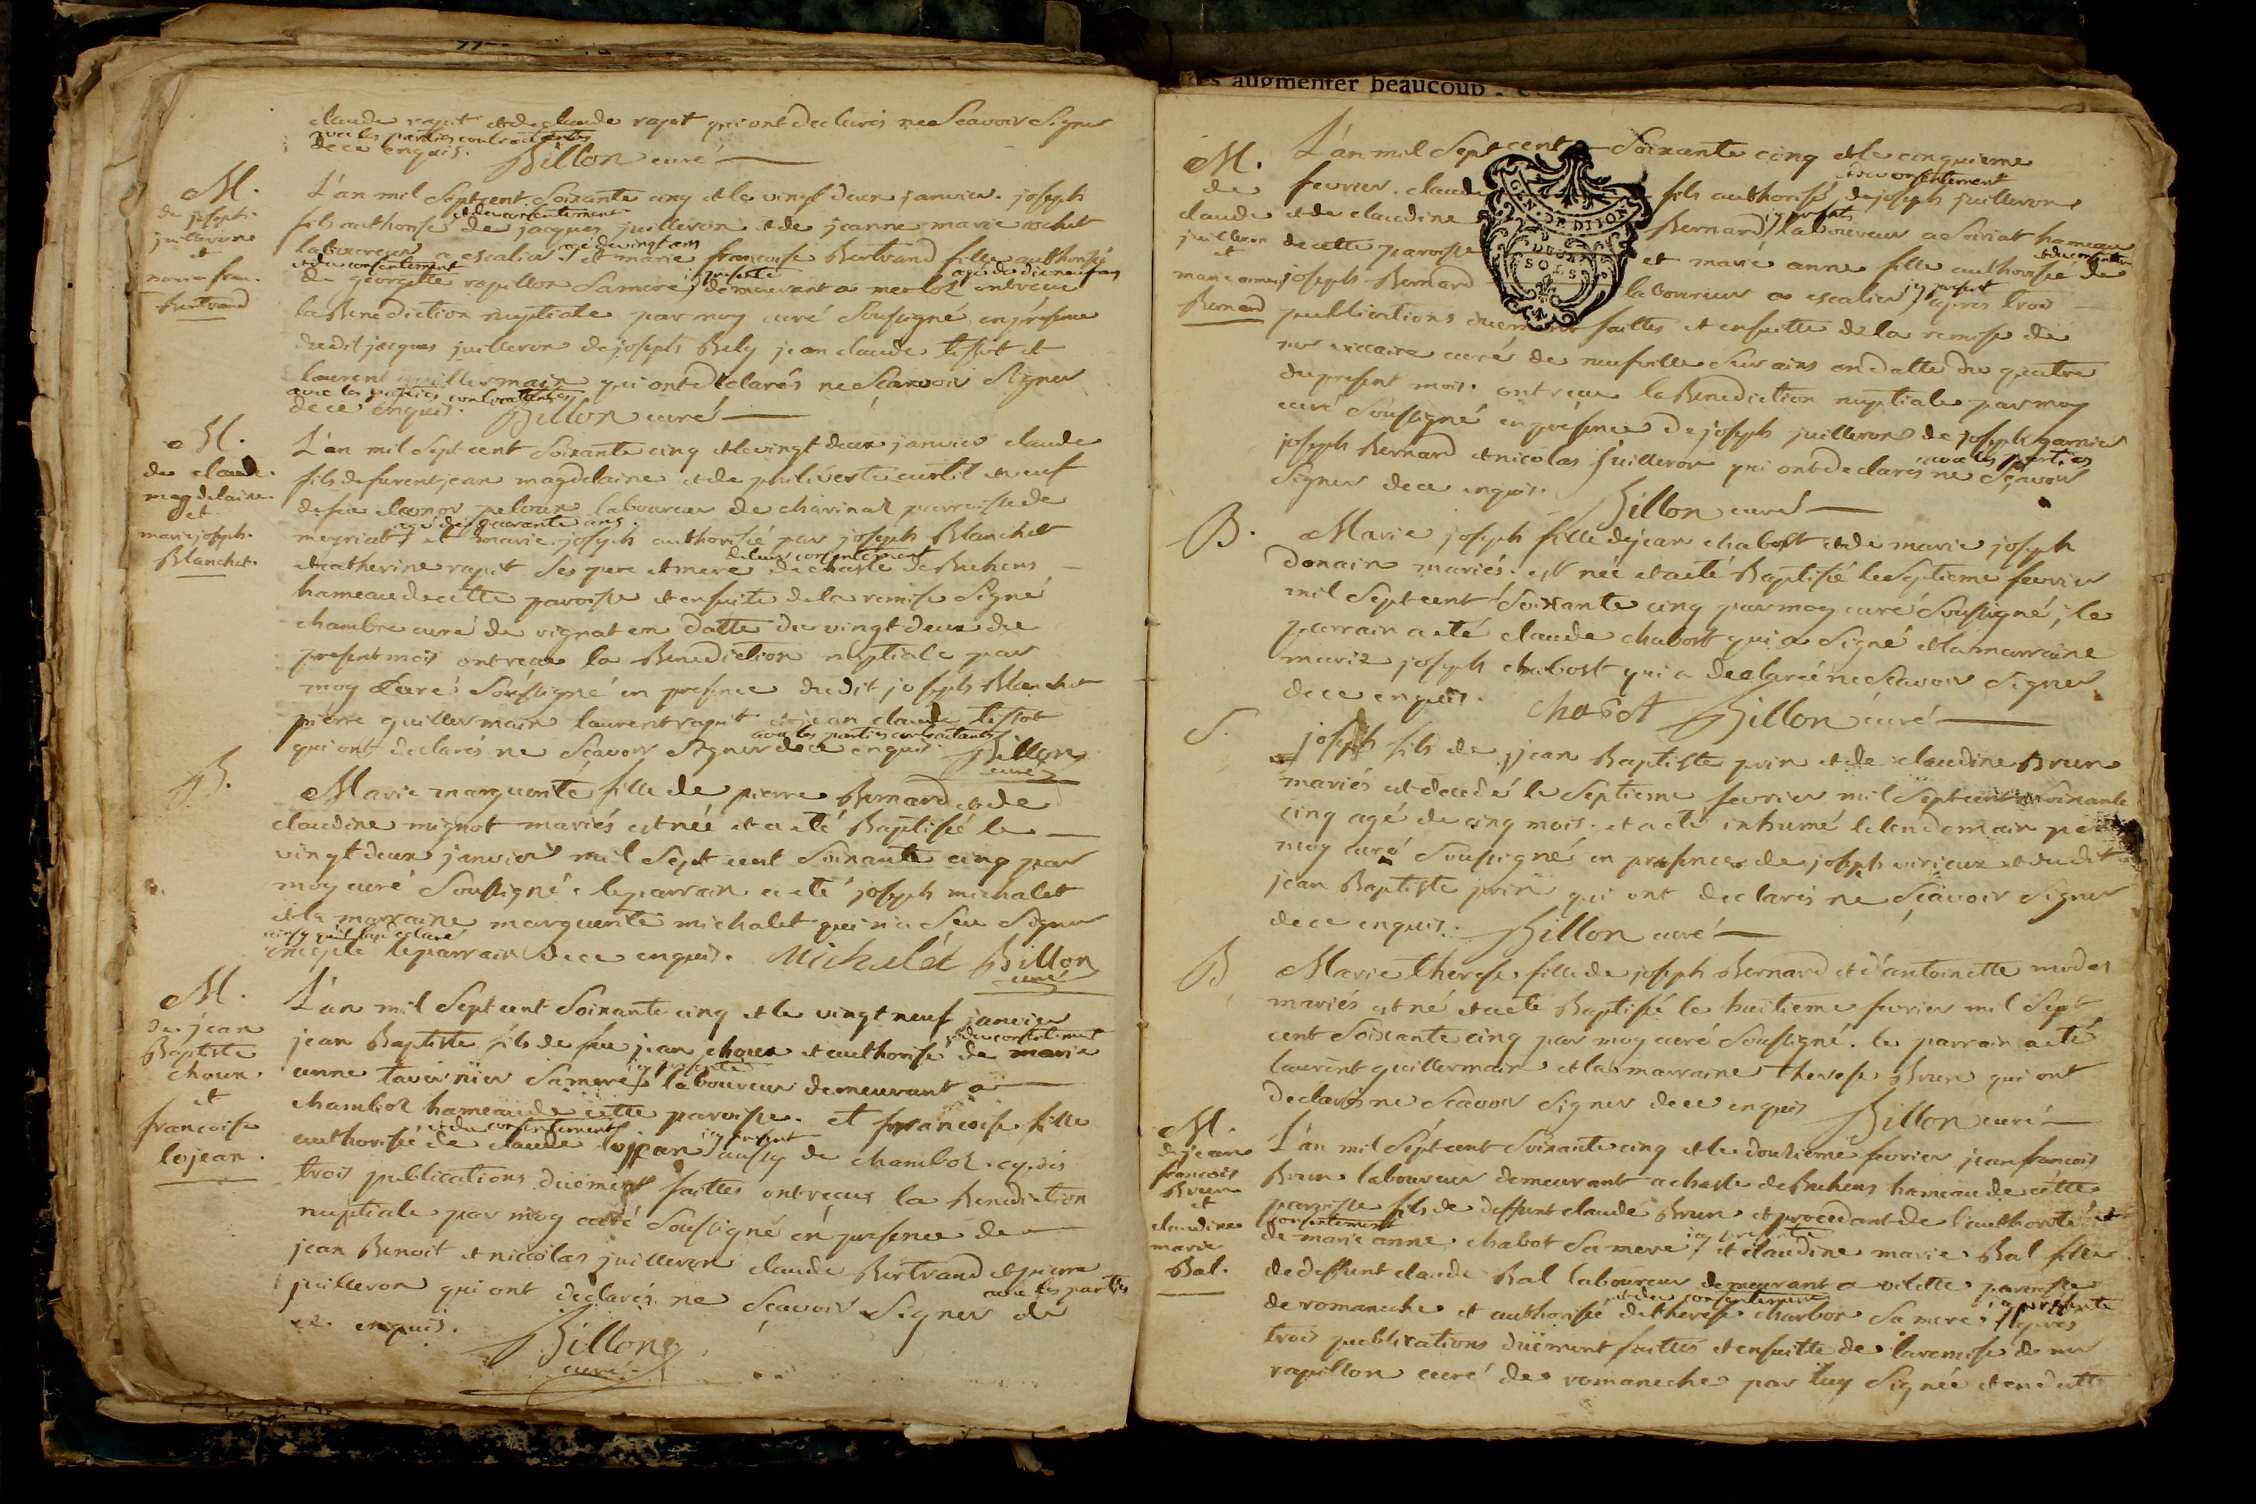 claude rapit et de claude rapit qui ont declarés ne Scavoir Signer
avec les parties contractantes
de ce enquis. Billon curé
M.
de joseph
juilleron
et
marie fran.
Bertrand
L'an mil Sept cent Soixante cinq et le vingt deux janvier. joseph
et du consentement
fils authorisé de jacques juilleron et de jeanne marie
agé de vingt ans
laboureur a escalier et marie françoise Bertrand fille authorisée
et du consentement presente agée de dix neuf ans
de georgette rapillon Sa mere demeurant a merloz ont receu
la Benediction nuptiale par moy curé Soussigné en presence
dudit jacques juilleron de joseph Bely jean claude tissot et
laurent guillermain qui ont declarés ne Scavoir Signer
avec les parties contractantes
de ce enquis. Billon curé
M.
de claude
magdelaine
et
marie joseph
Blanchet.
L'an mil Sept cent Soixante cinq et le vingt deux janvier claude
fils de furent jean magdelaine et de curtil veuf
de feue laboureur de chavinat parroisse de
agé de quarante ans
meyriat et marie joseph authorisée par joseph Blanchet
de leur consentement
et catherine rapit Ses pere et mere de chasle de Buhens
hameau de cette paroisse et ensuite de la remise Signé
chambre curé de vignat en datte du vingt deux du
present mois ont receu la Benediction nuptiale par
moy Curé Soussigné en presence dudit joseph Blanchet
pierre guillermain laurent rapit et jean claude tissot
avec les parties contractantes
qui ont declarés ne Scavoir Signer de ce enquis. Billon
curé
B.
Marie marguerite fille de pierre Bernard et de
claudine mignot mariés est née et a eté Baptisée le
vingt deux janvier mil Sept cent Soixante cinq par
moy curé Soussigné. le parrain a eté joseph michalet
et la marraine marguerite michalet qui n'a Seu Signer
ainsy qu'il l'a declaré
le parrain de ce enquis. Michalet Billon
curé
M.
de jean
Baptiste
choux.
et
francoise
lojean.
L'an mil Sept cent Soixante cinq et le vingt neuf janvier
et du consentement
jean Baptiste fils de feu jean choux et authorisé de marie
icy presente
anne tavernier Sa mere laboureur demeurant a
chamboz hameau de cette paroisse. et francoise fille
et du consentement icy present
authorisée de claude lojean aussy de chamboz.
trois publications düement faittes ont reçus la Benediction
nuptiale par moy curé Soussigné en presence de
jean Benoit et nicolas juilleron claude Bertrand et pierre
avec les parties
juilleron qui ont declarés ne Scavoir Signer de
ce enquis. Billon
curé
es augmenter beaucoup
M.
de
claude
juilleron
et
marie anne
Bernard
GEN. DE DIJON
DEUX
SOLS
L'an mil Sept cent Soixante cinq et le cinquieme
et du consentement
fevrier. claude fils authorisé de joseph juilleron
icy presents
et de claudine Bernard laboureur a Soiriat hameau
et du consentement
de cette paroisse et marie anne fille authorisée de
icy present
joseph Bernard laboureur a escalier apres trois
publications düement faittes et ensuitte de la remise de
mr curé de neufville Sur ains en datte du quatre
du present mois. ont receu la Benediction nuptiale par moy
curé Soussigné en presence de joseph juilleron de joseph garnier
avec les parties
joseph Bernard et nicolas juilleron qui ont declarés ne Scavoir
Signer de ce enquis. Billon curé
B.
Marie joseph fille de jean chabost et de marie joseph
Donain mariés. est née et a eté Baptisée le Septieme fevrier
mil Sept cent Soixante cinq par moy curé Soussigné, le
parrain a eté claude chabost qui a Signé et la marraine
marie joseph chabost qui a declarée ne Scavoir Signer
de ce enquis. chabot Billon curé
S.
joseph fils de jean Baptiste prin et de claudine Brun
mariés est decedé le Septieme fevrier mil Sept cent Soixante
cinq agé de cinq mois. et a eté inhumé le lendemain par
moy curé Soussigné en presence de joseph virieux et dudit
jean Baptiste prin qui ont declarés ne Scavoir Signer
de ce enquis. Billon curé
B
Marie therese fille de joseph Bernard et d'antoinette modas
mariés est né et a eté Baptisée le huitieme fevrier mil Sept
cent Soixante cinq par moy curé Soussigné. le parrain a eté
laurent guillermain et la marraine therese Brun qui ont
declarés ne Scavoir Signer de ce enquis Billon curé
M.
de jean
francois
Brun
et
claudine
marie
Bal.
L'an mil Sept cent Soixante cinq et le douzieme fevrier jean francois
Brun laboureur demeurant a chasle de Buhens hameau de cette
paroisse fils de deffunt claude Brun et procedant de l'authorité et
consentement icy presente
de marie anne chabot Sa mere et claudine marie Bal fille
de deffunt claude Bal laboureur demeurant a vilette paroisse
et du consentement icy presente
de romaneche et authorisée de therese charbon Sa mere apres
trois publications düement faittes et ensuitte de la remise de mr
rapillon curé de romaneche par luy Signée et en datte